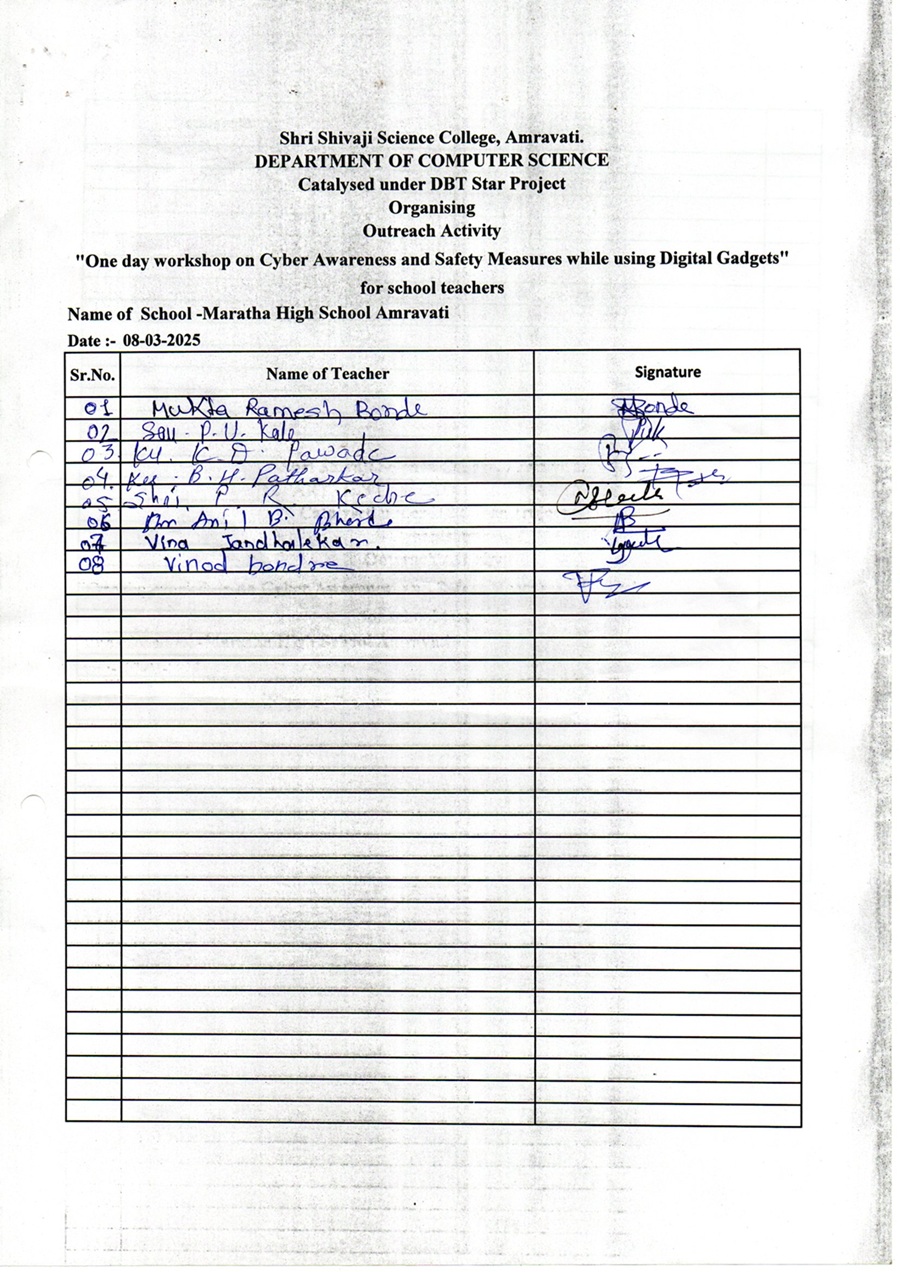 Shri Shivaji Science College, Amravati.
DEPARTMENT OF COMPUTER SCIENCE
Catalysed under DBT Star Project
Organising
Outreach Activity
"One day workshop on Cyber Awareness and Safety Measures while using Digital Gadgets"
for school teachers
Name of School -Maratha High School Amravati
Date :- 08-03-2025
Sr.No. Name of Teacher Signature
01 Mukta Ramesh Bonde
02 Sau. P. U. Kale
03 Ku. K. D. Pawade
04. Ku. B. H. Patharkar
05 Shri. P. R. Keche
06 Anil B.
07 Vina Jandhalekar.
08 Vinod bondre